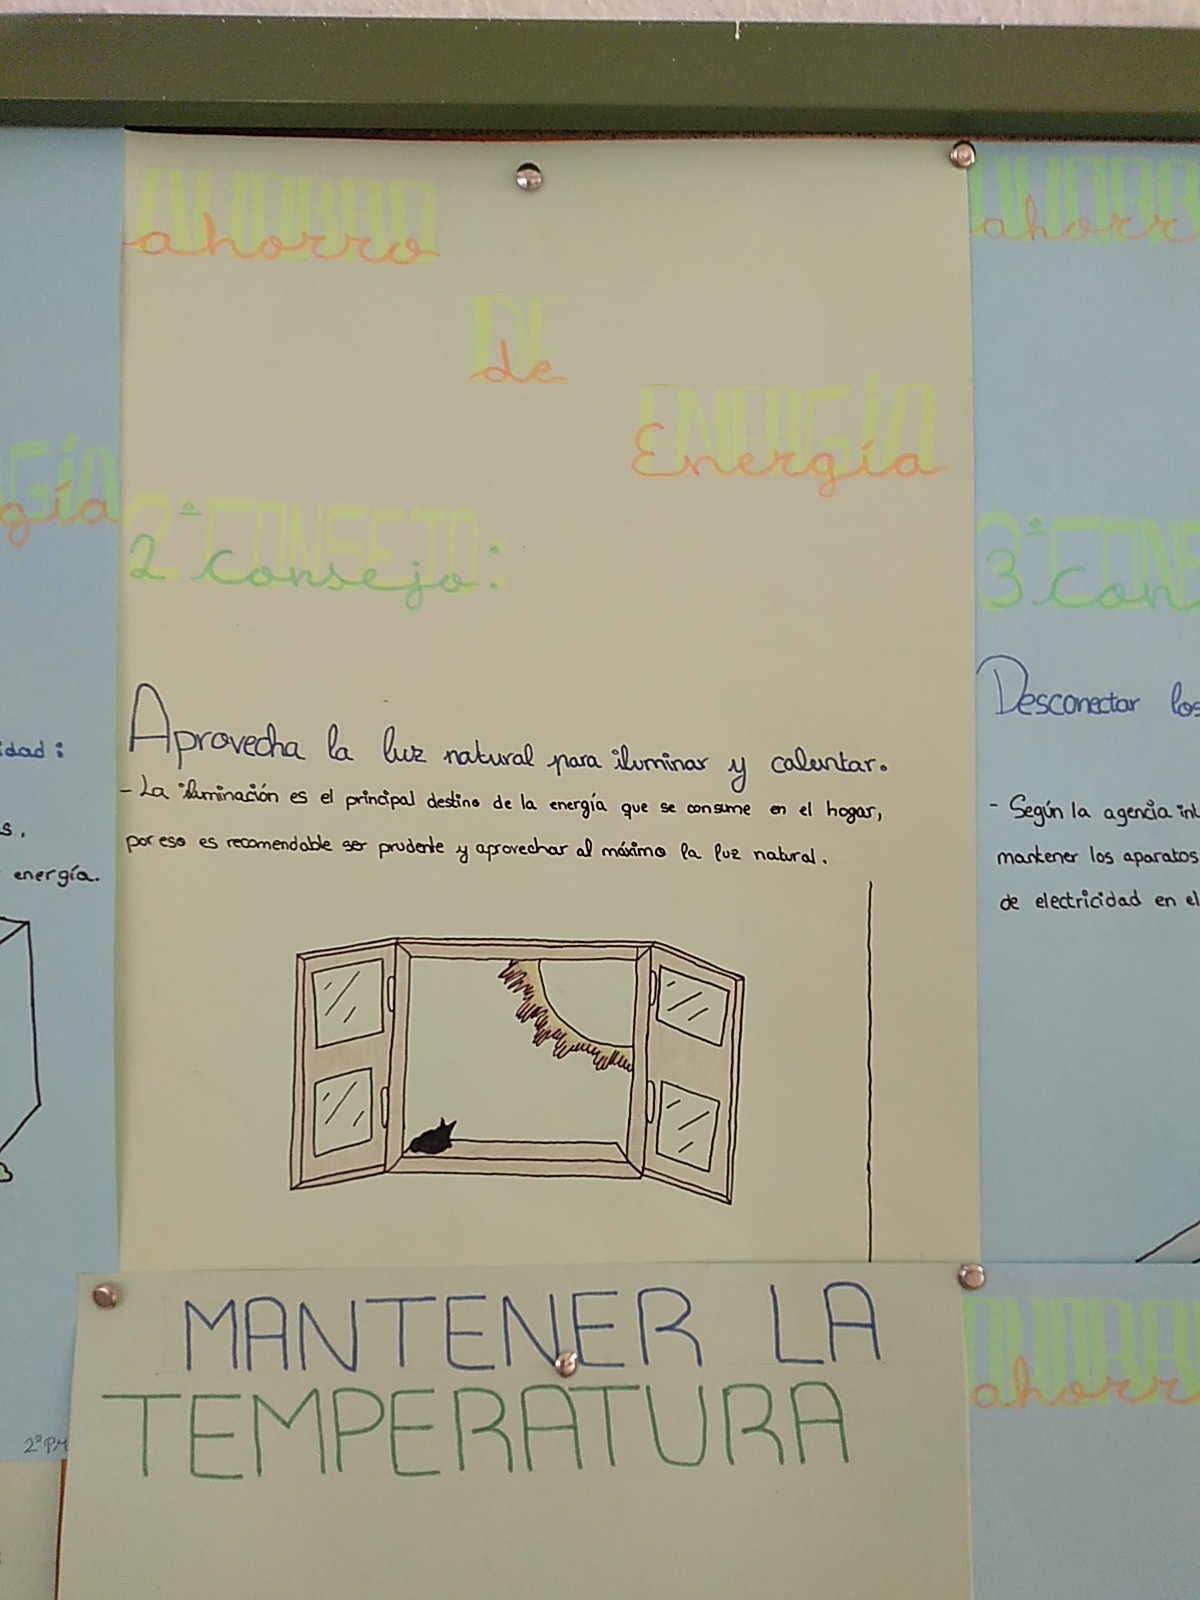 ahorro
de
Energía
2º Consejo:
Aprovecha la luz natural para iluminar y calentar.
- La iluminación es el principal destino de la energía que se consume en el hogar,
por eso es recomendable ser prudente y aprovechar al máximo la luz natural.
MANTENER LA
TEMPERATURA
gía
idad:
s.
energía.
2º PM
ahorr
3º Con
Desconectar los
- Según la agencia int
mantener los aparatos
de electricidad en el
ahorr